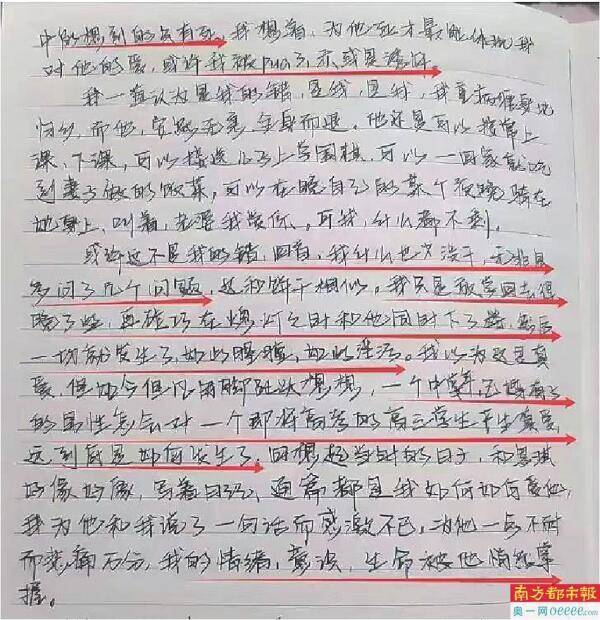 中的想到的只有死,我想着,为他死才最能体现我
对他的爱,或许我被pua了,亦或是洗脑。
我一直认为是我的错,是我,是我,我
而他,完好无害,全身而退。他还是可以接常上
课,下课,可以接送儿子上学围棋,可以一回家就吃
到妻子做的饭菜,可以在晚自己的某个夜晚骑在
她身上,叫着,
可我,什么都不剩。
或许这不是我的错,回首,我什么也没干,无非是
多问了几个问题,这和饼干相似。我只是放学回去得
晚了些,再碰巧在熄灯之时和他同时下了楼,最后
一切就发生了,如此暧昧,如此湿活。我以为这是真
爱,但如今但凡用脚趾头想想,一个中年,已婚有子
的男性怎么会对一个即将高考的高三学生产生真爱,
这到底是如何发生了,回想起当时的日子,和房琪
好像好像,写着日记,通篇都是我如何如何爱他,
我为他和我说了一句话而感激不已,为他一点不耐
而悲痛万分,我的情绪,意识,生命被他情绪掌
握。
南方都市報
奥一网oeeee.com